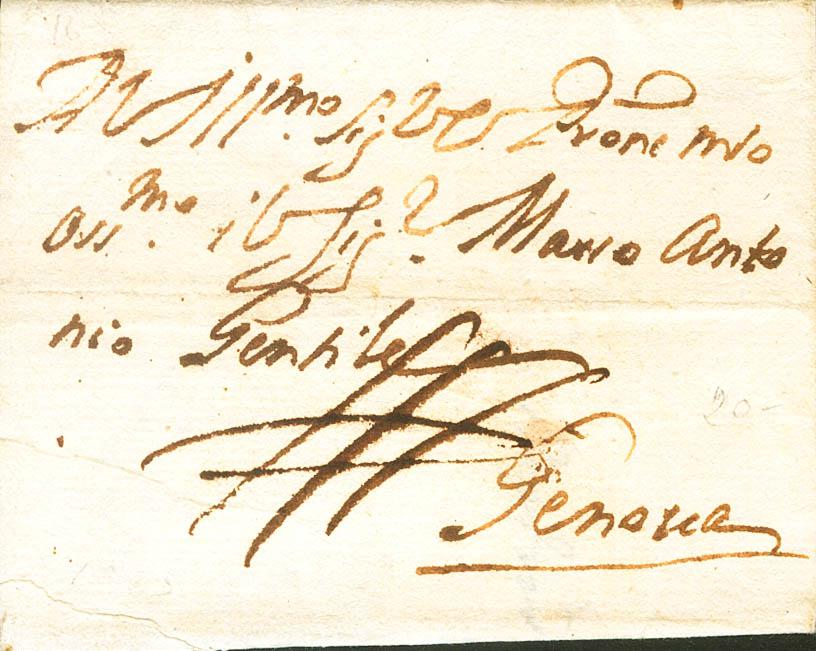 Al Ill.mo Sig.r et Prone mio
Oss.mo il Sig.r Marco Anto
nio Gentile
20-
Genova